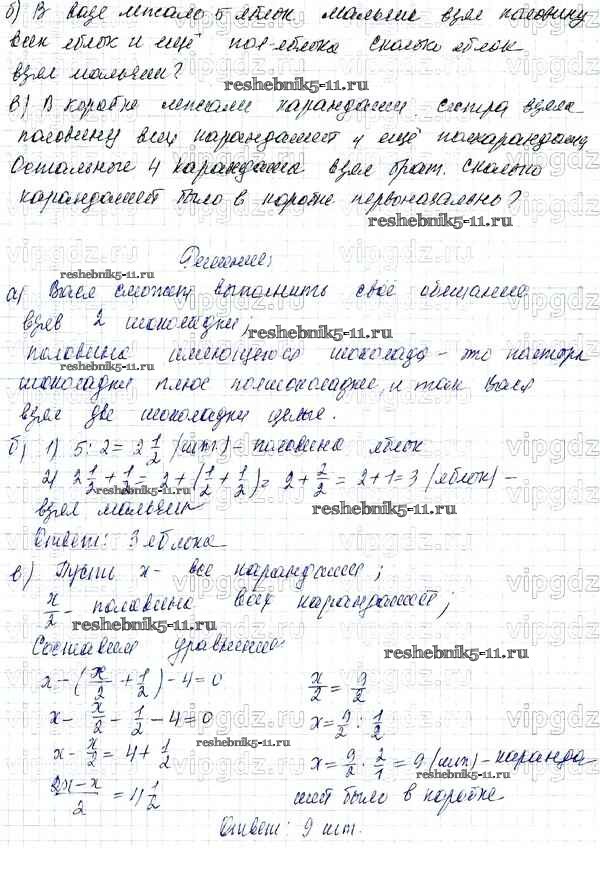 б) В вазе лежало 5 яблок мальчик взял половину
всех яблок и ещё пол-яблока Сколько яблок
взял мальчик?
reshebnik5-11.ru
в) В коробке лежали карандаши. сестра взяла
половину всех карандашей и ещё полкарандаша
Остальные 4 карандаша взял брат. Сколько
карандашей было в коробке первоначально?
reshebnik5-11.ru
Решение:
reshebnik5-11.ru
а) Вася сможет выполнить своё обещание
взяв 2 шоколадки;
reshebnik5-11.ru
половина имеющегося шоколада - это полторы
шоколадки плюс полшоколадки, и так Вася
взял две шоколадки целые.
б) 1) 5 : 2 = 2 1/2 (шт.) - половина яблок
2) 2 1/2 + 1/2 = 2 + (1/2 + 1/2) = 2 + 2/2 = 2 + 1 = 3 (яблок) -
взял мальчик
reshebnik5-11.ru
Ответ: 3 яблока
в) Пусть x - все карандаши;
x/2 - половина всех карандашей;
reshebnik5-11.ru
Составим уравнение
reshebnik5-11.ru
x - (x/2 + 1/2) - 4 = 0
x - x/2 - 1/2 - 4 = 0
x - x/2 = 4 + 1/2
reshebnik5-11.ru
2x - x/2 = 4 1/2
x/2 = 9/2
x = 9/2 : 1/2
reshebnik5-11.ru
x = 9/2 · 2/1 = 9 (шт) - каранда
шей было в коробке
Ответ: 9 шт.
vipgdz.ru